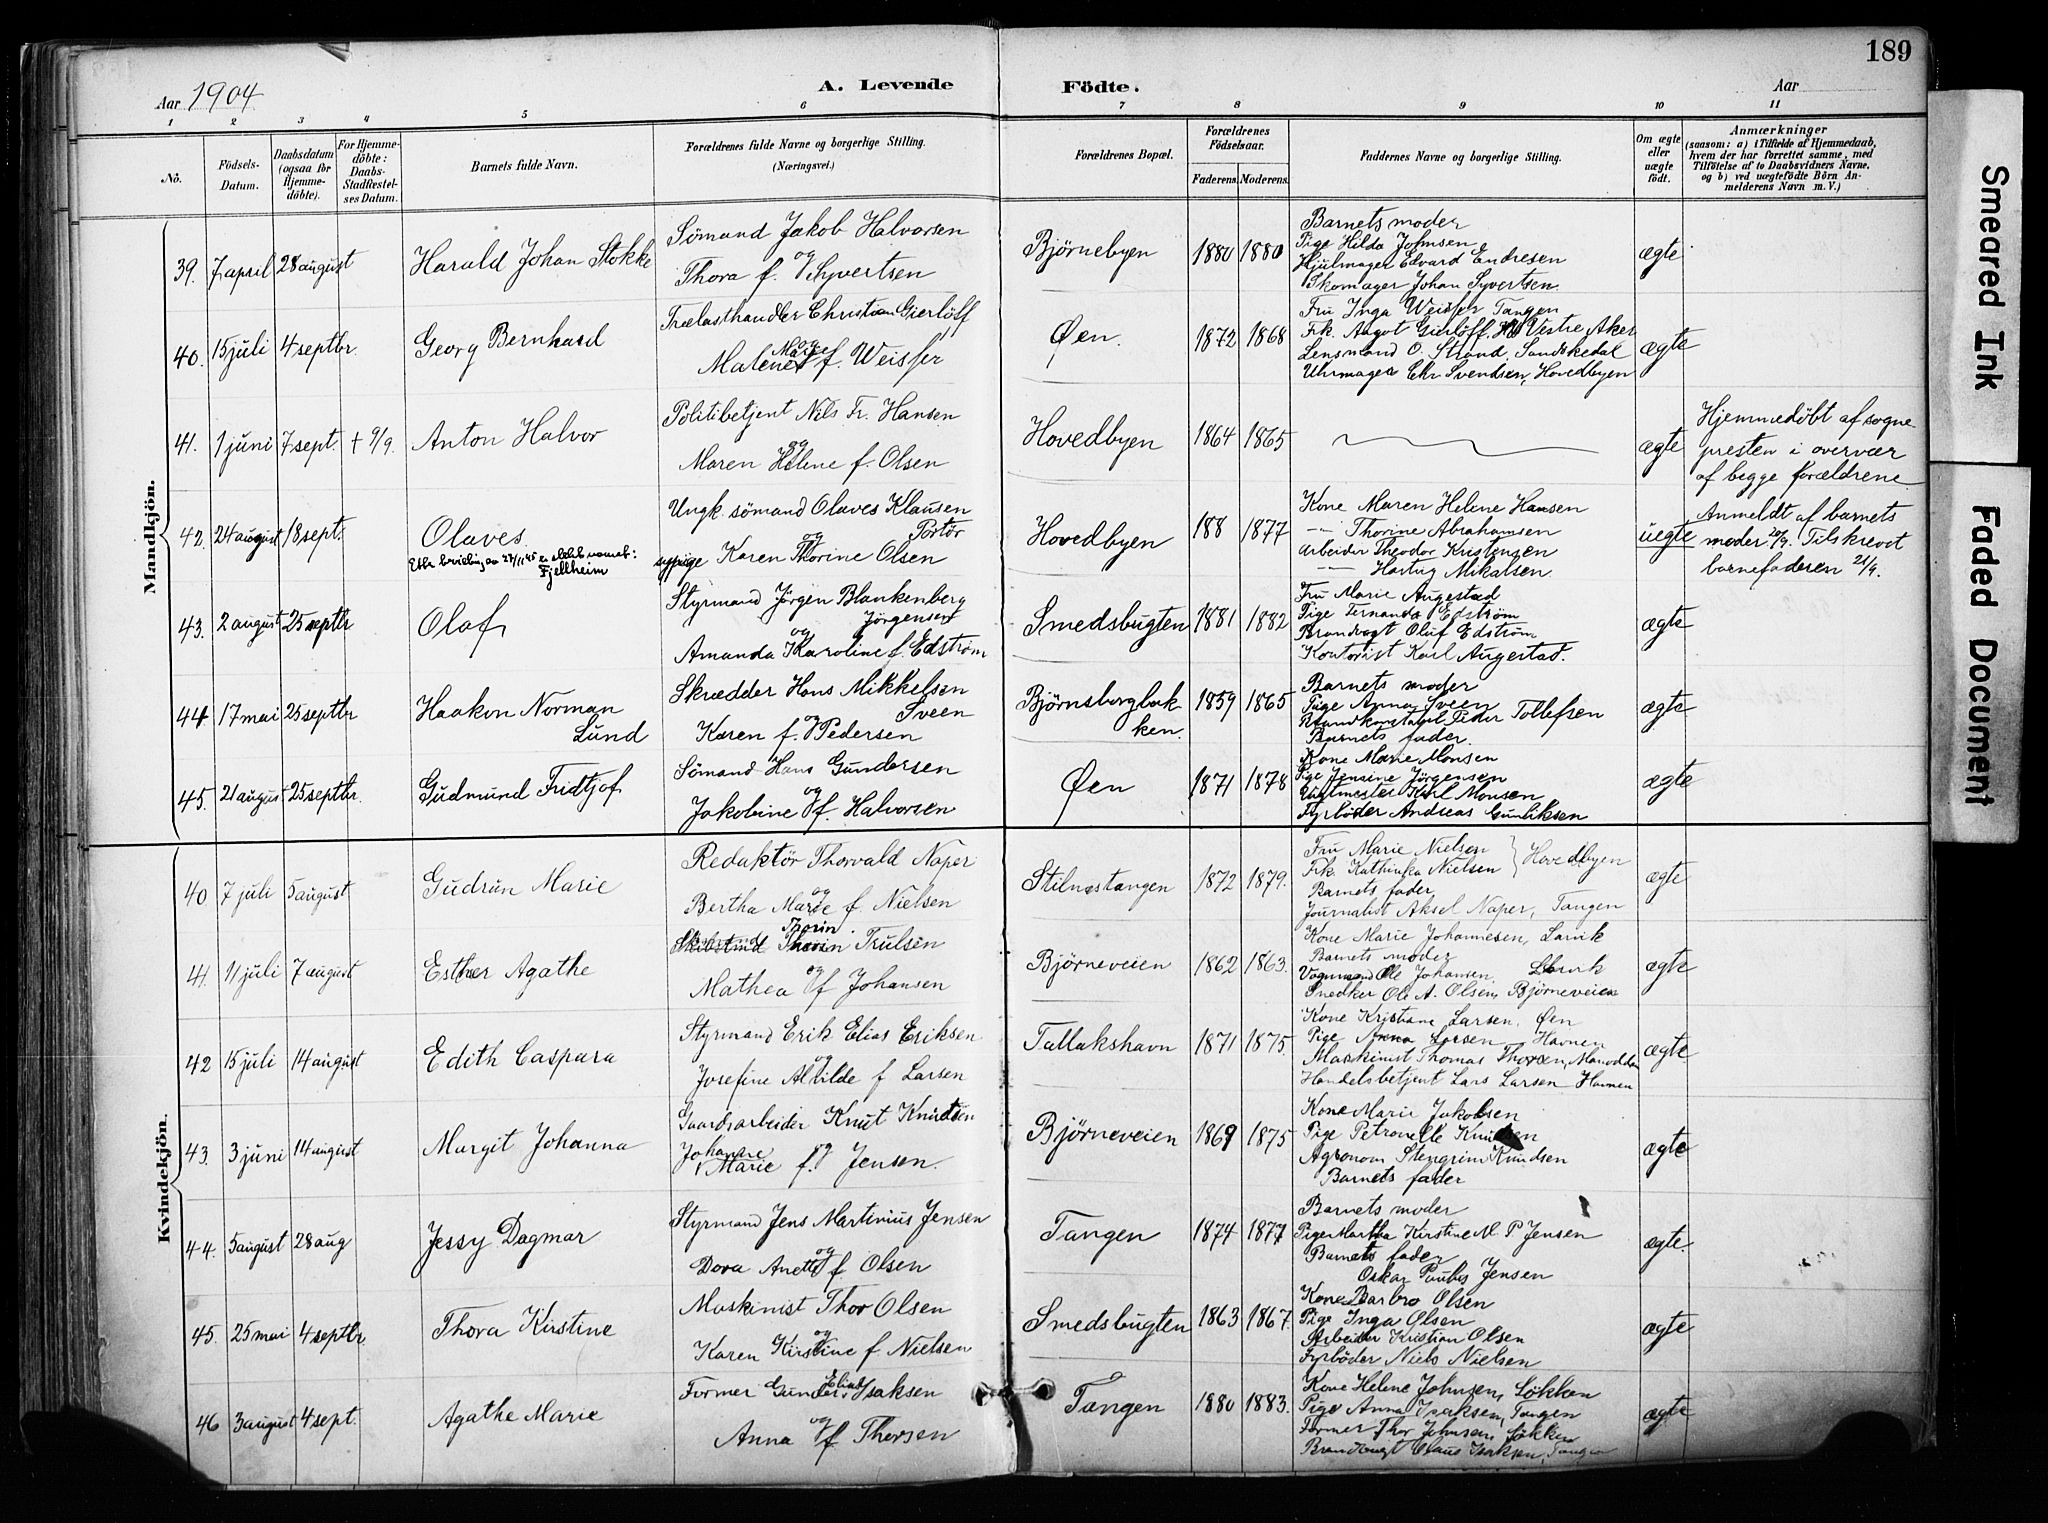 189
Aar 1904
A. Levende
Födte.
Aar
1 2 3 4 5 6 7 8 9 10 11
No.
Födsels-Datum.
Daabsdatum (ogsaa for Hjemmedöbte).
For Hjemmedöbte: Daabs-Stadfæstelses Datum.
Barnets fulde Navn.
Forældrenes fulde Navne og borgerlige Stilling. (Næringsvei.)
Forældrenes Bopæl.
Forældrenes Födselsaar.
Faderens. Moderens.
Faddernes Navne og borgerlige Stilling.
Om ægte eller uægte födt.
Anmærkninger
(saasom: a) i Tilfælde af Hjemmedaab, hvem der har forrettet samme, med Tilföielse af to Daabsvidners Navne. og b) ved uægtefödte Börn Anmelderens Navn m. V.)
Mandkjön.
39. 7 april 28 august Harald Johan Stokke
Sömand Jakob Halvorsen
og
Thora f. Syvertsen
Bjørnebyen 1880 1880
Barnets moder
Pige Hilda Johnsen
Hjulmager Edvard Endresen
Skomager Johan Syvertsen
ægte
40. 15 juli 4 septbr. Georg Bernhard
Trælasthandler Christian Gierløff
og
Malene Marie f. Weisser
Øen. 1872 1868
Fru Inga Weisser Tangen
Frk. Aagot Gierløff, Vestre Aker
Lensmand O. Strand, Sandskedal
Uhrmager Chr Svendsen, Hovedbyen
ægte
41. 1 juni 7 sept. + 9/9. Anton Halvor
Politibetjent Nils Fr. Hansen
og
Maren Helene f. Olsen
Hovedbyen 1864 1865
ægte
Hjemmedøbt af sogne
presten i overvær
af begge forældrene
42. 24 august 18 sept. Olaves
Fjellheim
Ungk. sömand Olaves Klausen
Portör
og
sypige Karen Thorine Olsen
Hovedbyen 188 1877
Kone Maren Helene Hansen
-"- Thorine Abrahamsen
Arbeider Theodor Kristensen
-"- Hartvig Mikalsen
uegte
Anmeldt af barnets
moder 20/9. Tilskrevet
barnefaderen 21/9.
43. 2 august 25 septbr Olaf
Styrmand Jörgen Blankenberg
Jörgensen
og
Amanda Karoline f. Edström
Smedsbugten 1881 1882
Fru Marie Augestad
Pige Fernanda Edström
Brandvagt Oluf Edström
Kontorist Karl Augestad.
ægte
44 17 mai 25 septbr Haakon Norman
Lund
Skrædder Hans Mikkelsen
Sveen
og
Karen f. Pedersen
Bjørnsborgbak-
ken. 1859 1865
Barnets moder
Pige Anna Sveen
Brandkonstabel Peder Tollefsen
Barnets fader.
ægte
45. 21 august 25 septbr. Gudmund Fridtjof
Sömand Hans Gundersen
og
Jakobine f. Halvorsen
Øen 1871 1878
Kone Marie Monsen
Pige Jensine Jörgensen
Karl Monsen
Fyrböder Andreas Gunliksen
ægte
Kvindekjön.
40 7 juli 5 august Gudrun Marie
Redaktör Thorvald Naper
og
Bertha Marie f. Nielsen
Stilnestangen 1872 1879.
Fru Marie Nielsen
Frk. Kathinka Nielsen } Hovedbyen
Barnets fader
Journalist Aksel Naper, Tangen
ægte
41. 11 juli 7 august Esther Agathe
Thorin
Thorin Trulsen
og
Mathea f Johansen
Bjørneveien 1862 1863.
Kone Marie Johannesen, Larvik
Barnets moder
Vognmand Ole Johansen, Larvik
Snedker Ole A. Olsen, Björneveien
ægte
42 15 juli 14 august Edith Caspara
Styrmand Erik Elias Eriksen
og
Josefine Alvilde f Larsen
Tallakshavn 1871 1875.
Kone Kristiane Larsen. Øen
Pige Anna Larsen Havnen
Maskinist Thomas Thorsen,
Handelsbetjent Lars Larsen Havnen
ægte
43. 3 juni 14 august Margit Johanna
Gaardsarbeider Knut Knudsen
og
Johanne Marie f. Jensen.
Bjørneveien 1869 1875
Kone Marie Jakobsen
Pige Petronelle Knudsen
Agronom Stengrim Knudsen
Barnets fader
ægte
44. 5 august 28 aug Jessy Dagmar
Styrmand Jens Martinius Jensen
og
Dora Anette f Olsen
Tangen 1874 1877
Barnets moder
Pige Martha Kirstine M. P. Jensen
Barnets fader
Oskar Paulus Jensen
ægte.
45. 25 mai 4 septbr. Thora Kirstine
Maskinist Thor Olsen
og
Karen Kirstine f. Nielsen
Smedsbugten 1863 1867.
Kone Barbro Olsen
Pige Inga Olsen
Arbeider Kristian Olsen
Fyrböder Niels Nielsen
ægte
46 3 august 4 sept. Agathe Marie
Former Gunder Isaksen
og
Anna f Thorsen
Tangen 1880 1883.
Kone Helene Johnsen, Løkken
Pige Anna Isaksen, Tangen
Former Thor Johnsen, Løkken
Brandvagt Claus Isaksen, Tangen
ægte
Smeared Ink
Faded Document